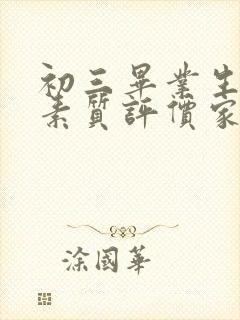 初三畢業生
素質評價家
涂國華